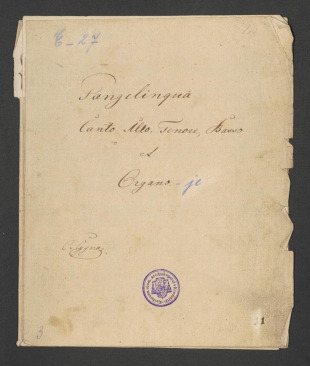 E-27
Pangelingua
Canto Alto, Tenore, Basso
et
Organo - je
3
11